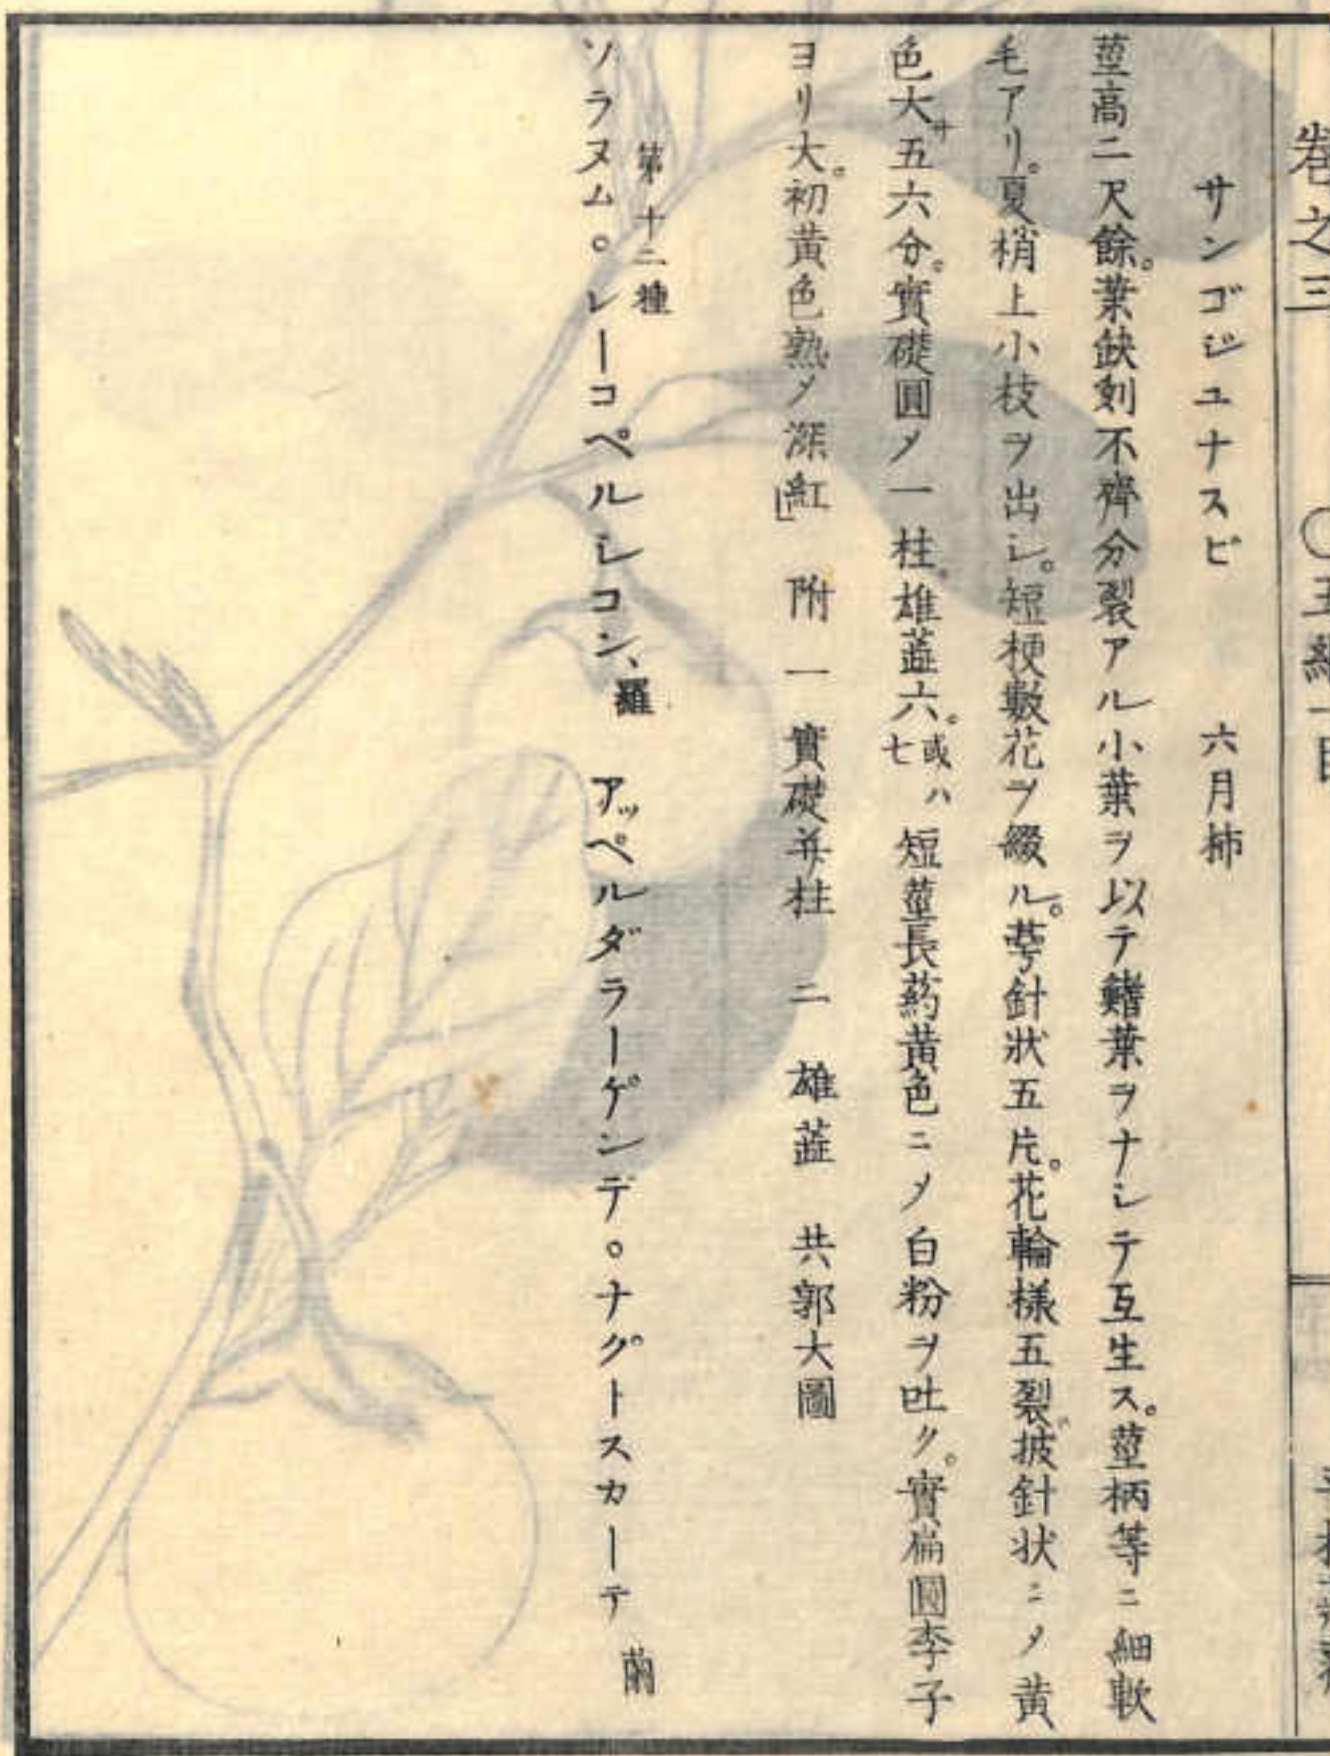 卷之三　〇五綱一目
サンゴジユナスビ　六月柿
莖高二尺餘。葉缺刻不齊分裂アル小葉ヲ以テ鰭葉ヲナシテ互生ス。莖柄等ニ細軟
毛アリ。夏梢上小枝ヲ出シ。短梗數花ヲ綴ル。萼針狀五片。花輪樣五裂。披針狀ニメ黃
色大サ五六分。實礎圓メ一柱。雄蕋六。或ハ七　短莖長葯黃色ニメ白粉ヲ吐ク。實扁圓李子
ヨリ大。初黃色熟メ深紅」　附　一　實礎并柱　二　雄蕋　共郭大圖
第十二種
ソラヌム。レーコペルシコン、羅　アッペルダラーゲンデ。ナクトスカーデ　蘭